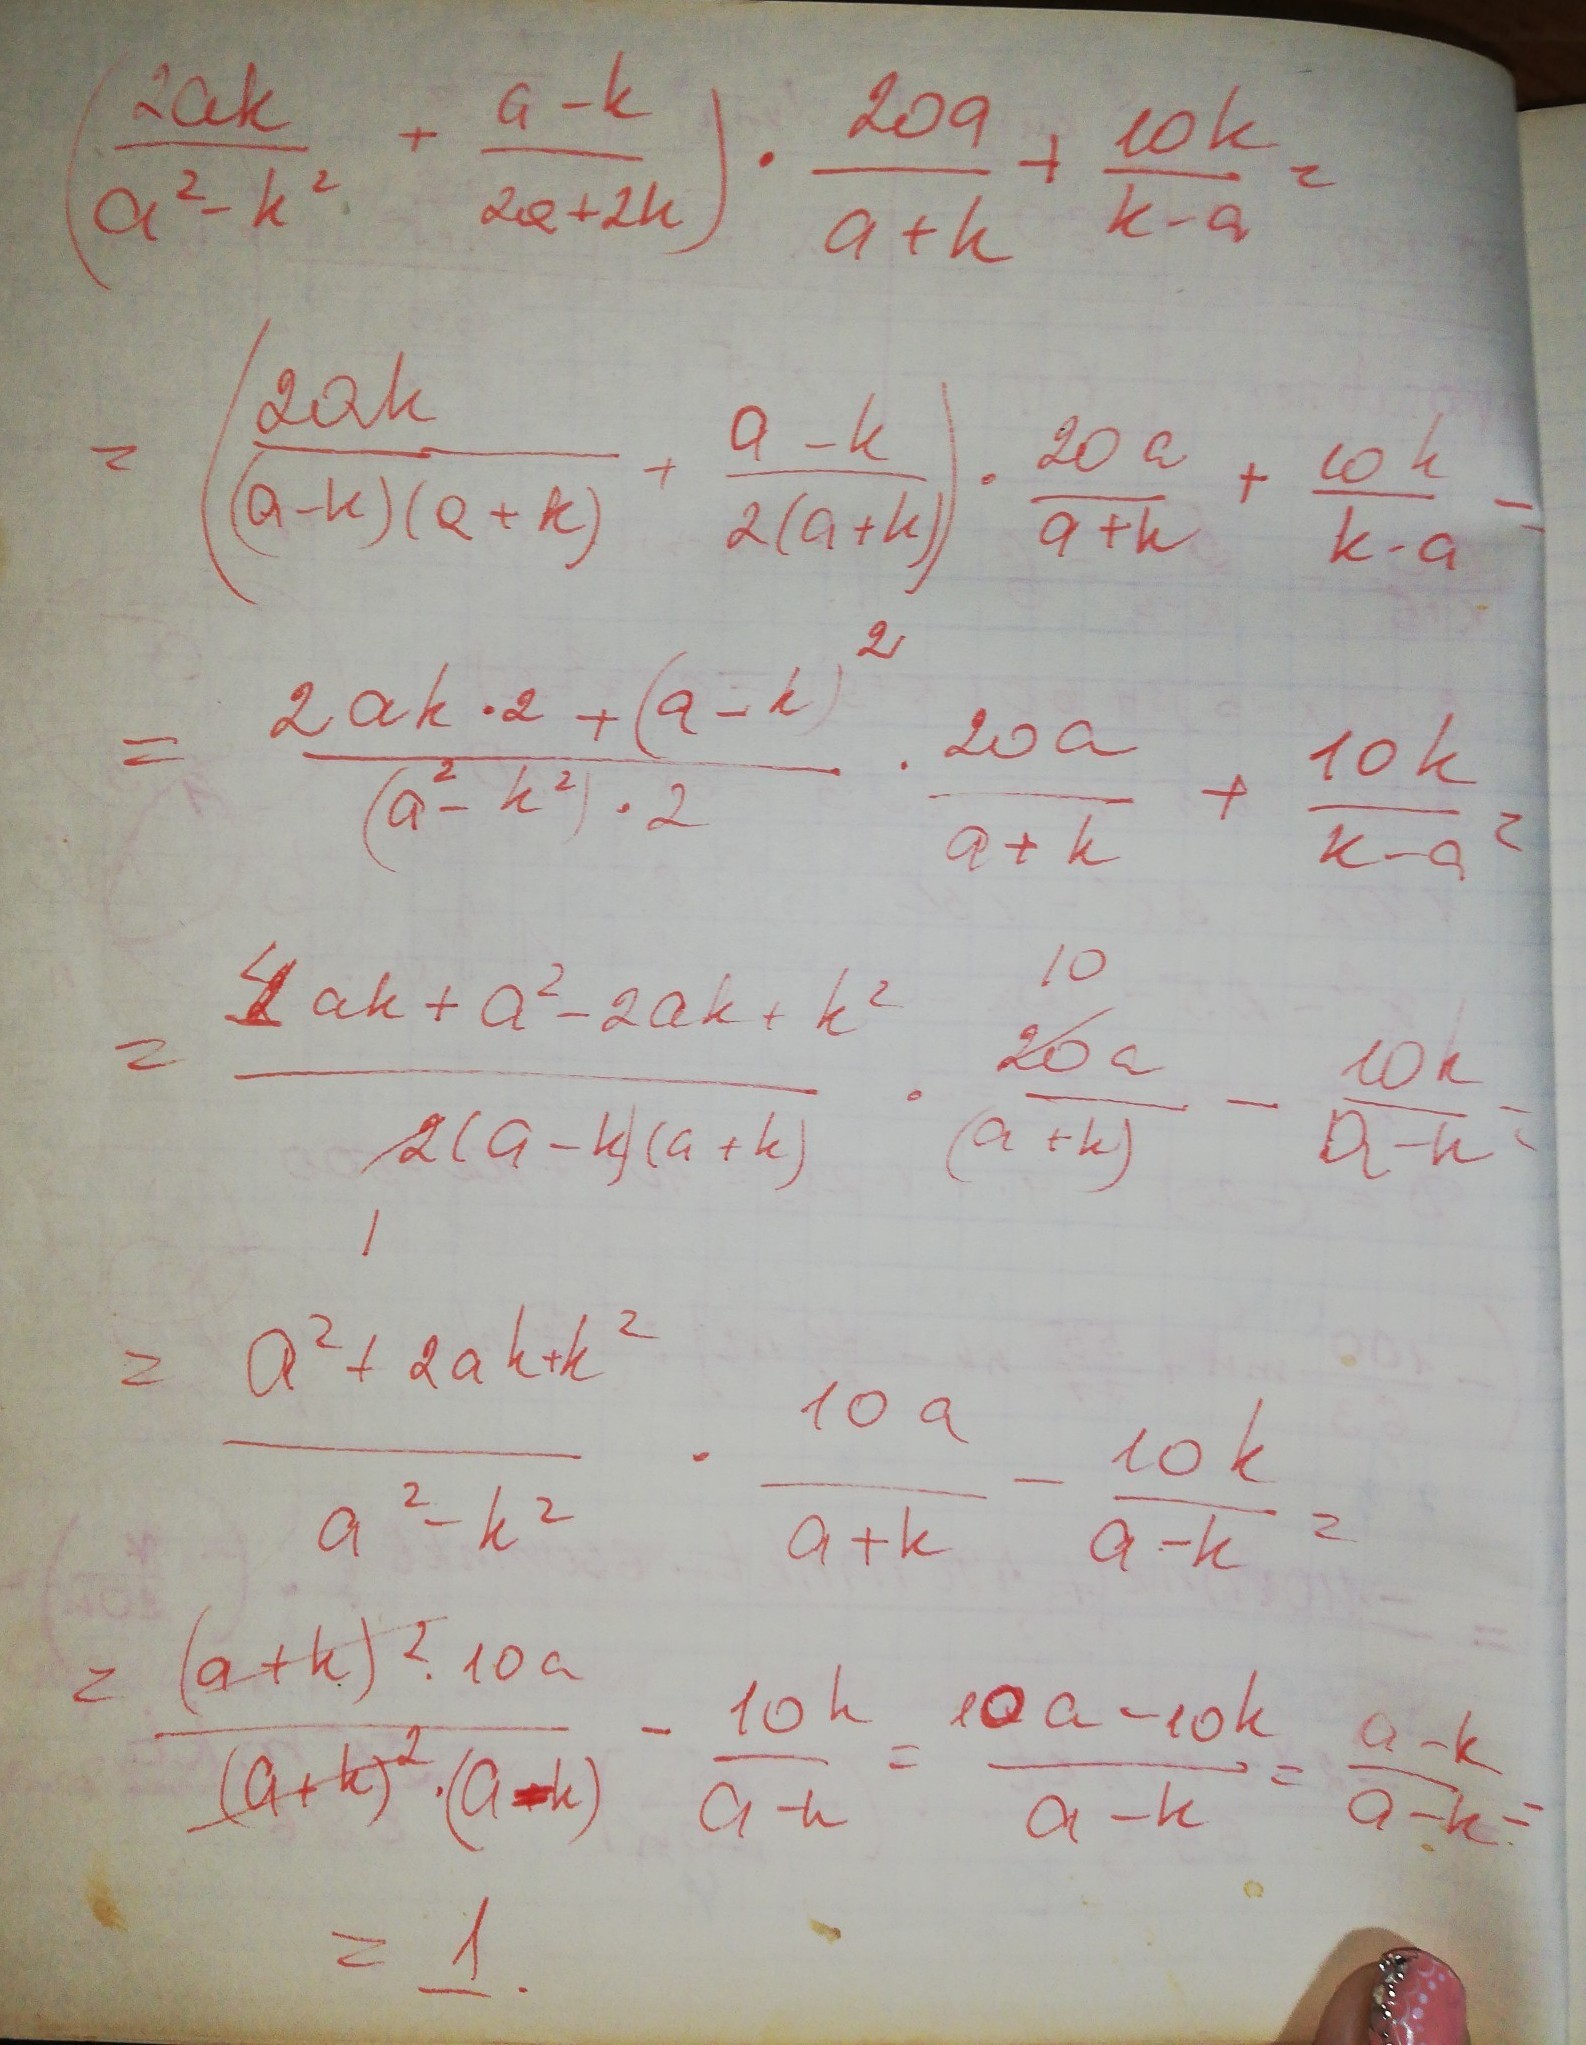 (2ak/(a²-k²) + (a-k)/(2a+2k)) · 20a/(a+k) + 10k/(k-a) =
= (2ak/((a-k)(a+k)) + (a-k)/(2(a+k))) · 20a/(a+k) + 10k/(k-a) =
= (2ak·2+(a-k)²)/((a²-k²)·2) · 20a/(a+k) + 10k/(k-a) =
= (4ak+a²-2ak+k²)/(2(a-k)(a+k)) · 20a/(a+k) - 10k/(a-k) =
10
1
= (a²+2ak+k²)/(a²-k²) · 10a/(a+k) - 10k/(a-k) =
= ((a+k)²·10a)/((a+k)²·(a-k)) - 10k/(a-k) = (10a-10k)/(a-k) = (a-k)/(a-k) =
= 1.